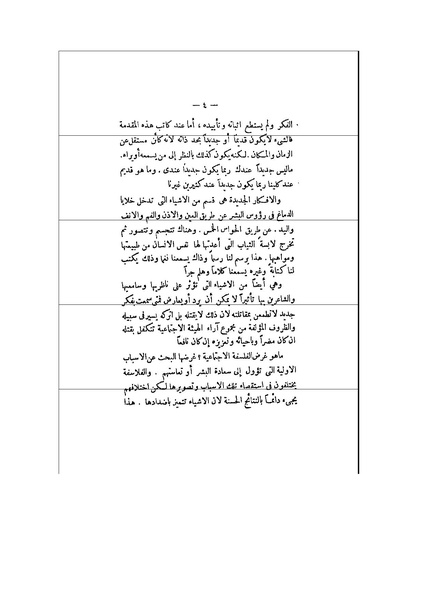 — ٤ —
الفكر ولم يستطع اثباته وتأييده ، أما عند كاتب هذه المقدمة
فالشيء لا يكون قديماً أو جديداً بحد ذاته لانه كائن مستقل عن
الزمان والمكان . لكنه يكون كذلك بالنظر إلى من يسمعه أو يراه .
ماليس جديداً عندك ربما يكون جديداً عندي . وما هو قديم
عند كلينا ربما يكون جديداً عند كثيرين غيرنا
والافكار الجديدة هى قسم من الاشياء التى تدخل خلايا
الدماغ في رؤوس البشر عن طريق العين والاذن والفم والانف
واليد . عن طريق الحواس الخمس . وهناك تتجسم وتتصور ثم
تخرج لابسة الثياب التى أعدتها لها نفس الانسان من طبيعتها
ومواهبها . هذا يرسم لنا رسماً وذاك يسمعنا نغما وذلك يكتب
لنا كتابة وغيره يسمعنا كلاماً وهلم جراً
وهي أيضاً من الاشياء التى تؤثر على ناظريها وسامعيها
والشاعرين بها تأثيراً لا يمكن أن يرد أو يعارض فمتى سمعت بفكر
جديد لا تطمعن بمقاتلته لان ذلك لا يقتله بل اتركه يسير في سبيله
والظروف المؤلفة من مجموع آراء الهيئة الاجتماعية تتكفل بقتله
ان كان مضراً وباحيائه وتعزيزه إن كان نافعاً
ماهو غرض الفلسفة الاجتماعية ؟ غرضها البحث عن الاسباب
الاولية التى تؤول إلى سعادة البشر أو تعاستهم . والفلاسفة
يختلفون في استقصاء تلك الاسباب وتصويرها لكن اختلافهم
يجيء دائماً بالنتائج الحسنة لان الاشياء تتميز باضدادها . هذا